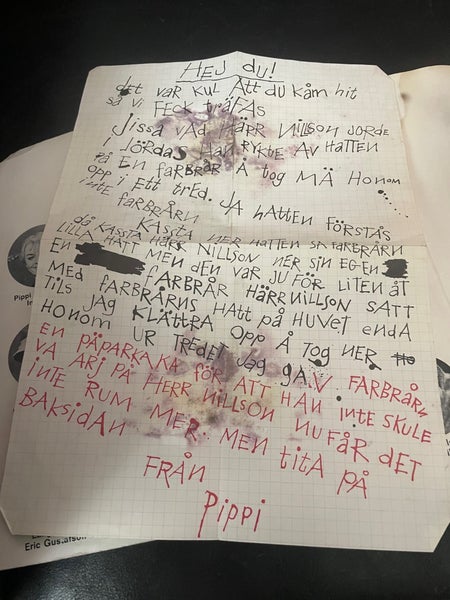 HEJ du!
det var kul Att du kåm hit
så vi FECK träFAS
Jissa vad HÄRR Nillson Jorde
i Jördas HAN RYkte AV HATTEN
på EN FARBRÅR Å tog MÄ Honom
opp i ETT tRED. JA HATTEN FÖRSTÅS
inte FARBRÅRN
KASSTA NER HATTEN SA FARBRÅRN
då KASSTA HÄRR NILLSON NER SIN EGEN
LILLA HATT MEN dEN var JU FÖR LITEN åT
EN FARBRÅR HÄRR Nillson SATT
MED FARBRÅRNS HATT på HUVET ENdA
TILS JAG KLÄTTRA OPP Å TOG NER
HONOM UR TREDET JAG GAV FARBRÅRN
EN PÄPARKAKA FÖR ATT HAN INTE SKULE
VA ARJ PÅ HERR NILLSON NU FÅR dET
INTE RUM MER MEN tITA PÅ
BAKSIdAN
FRÅN
Pippi
Pippi
Eric Gustafson